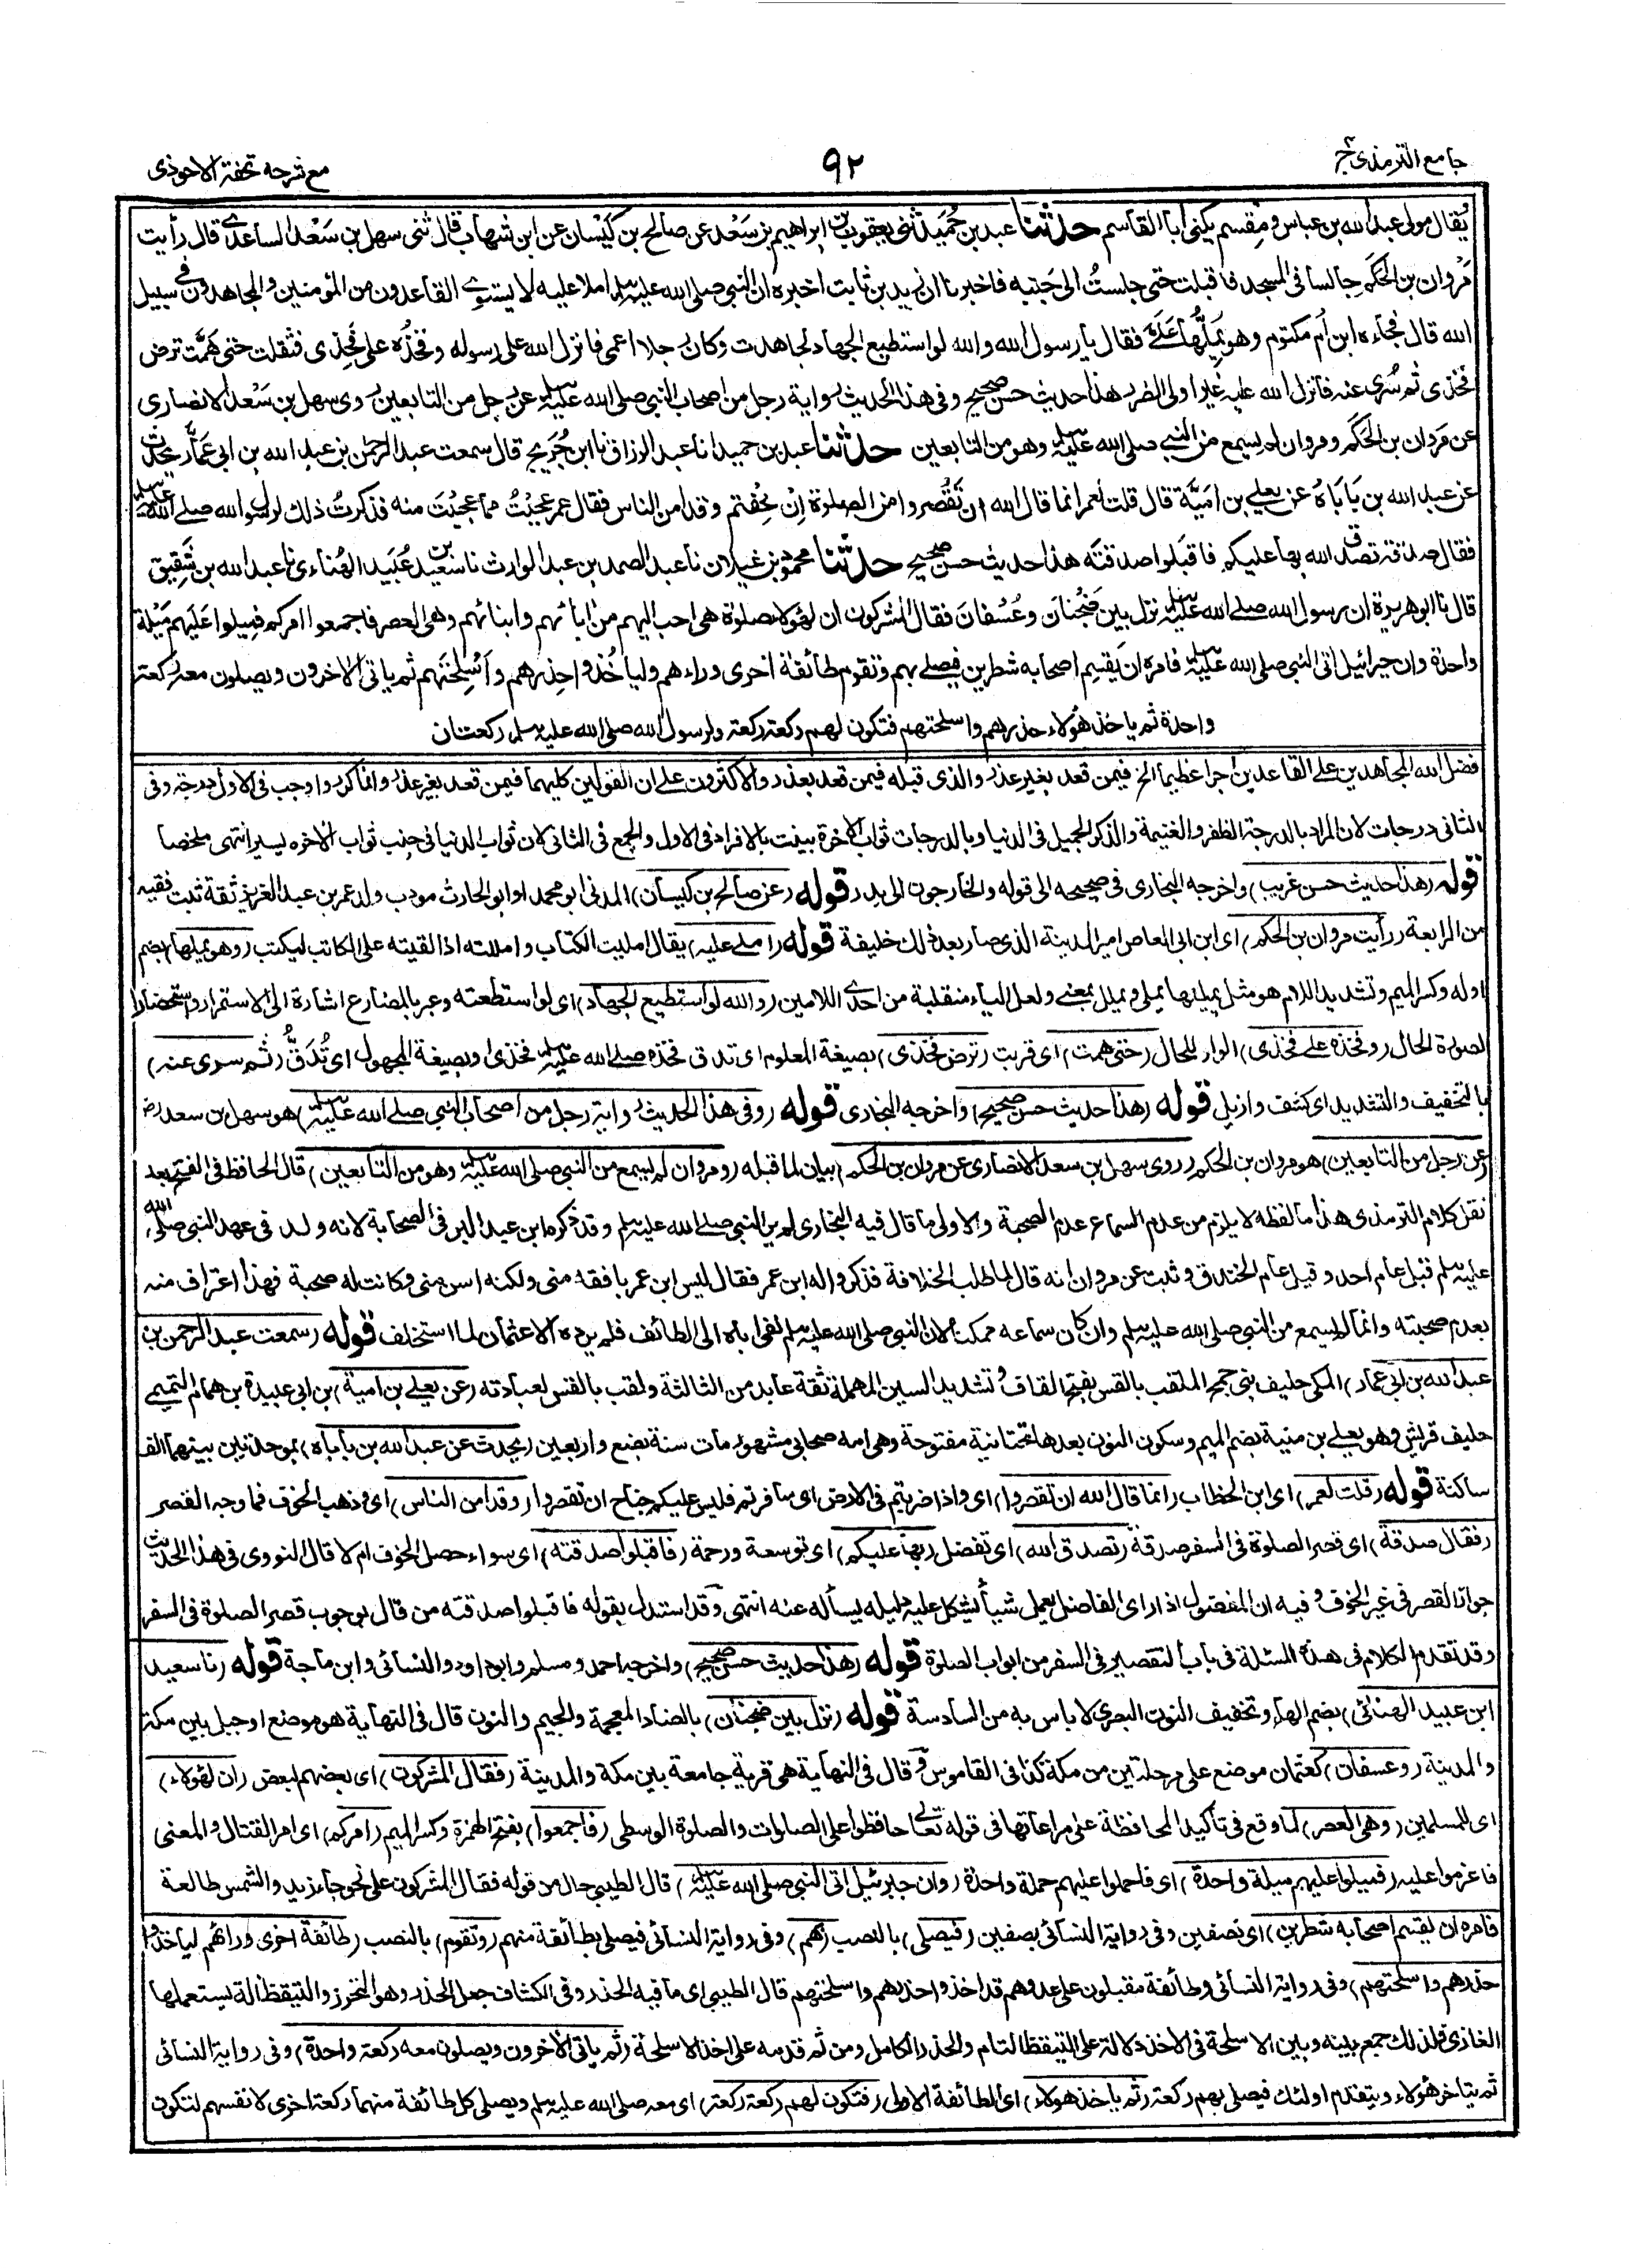 جامع الترمذى ج٤
٩٢
مع شرحه تحفة الاحوذى
يُقال مولى عبد الله بن عباس ومِقسم يكنى ابا القاسم حدثنا عبد بن حُمَيد ثنى يعقوب بن ابراهيم بن سَعْد عن صالح بن كَيْسان عن ابن شهاب قال ثنى سهل بن سَعْد الساعدى قال رأيت
مَرْوان بن الحَكَم جالسا فى المسجد فاقبلت حتى جلستُ الى جَنبه فاخبرنا ان زيد بن ثابت اخبره ان النبى صلى الله عليه وسلم املا عليه لا يستوى القاعدون من المؤمنين والمجاهدون فى سبيل
الله قال فجاءه ابن أم مكتوم وهو يُمِلُّها عَلَىَّ فقال يا رسول الله والله لو استطيع الجهاد لجاهدت وكان رجلا اعمى فانزل الله على رسوله وفخذُه على فخِذى فثقلت حتى هَمَّت ترض
فخذى ثم سُرّى عنه فانزل الله عليه غير اولى الضرر هذا حديث حسن صحيح وفى هذا الحديث رواية رجل من اصحاب النبى صلى الله عليه وسلم عن رجل من التابعين روى سهل بن سَعْد الانصارى
عن مروان بن الحَكَم ومروان لم يسمع من النبى صلى الله عليه وسلم وهو من التابعين حدثنا عبد بن حميد انا عبد الرزاق نا ابن جُرَيج قال سمعت عبد الرحمن بن عبد الله بن ابى عمَّار يحدث
عن عبد الله بن باباهُ عن يعلى بن امَيَّة قال قلت لعمر انما قال الله ان تَقْصُروا من الصلوة اِنْ خِفتم وقد امن الناس فقال عمر عجِبْتُ مما عجِبْتَ منه فذكرتُ ذلك لرسول الله صلى الله عليه وسلم
فقال صدقة تصدق الله بها عليكم فاقبَلوا صدقتَه هذا حديث حسن صحيح حدثنا محمود بن غيلان نا عبد الصمد بن عبد الوارث نا سعيد بن عُبَيد الهُناءى نا عبد الله بن شَقِيق
قال نا ابو هريرة ان رسول الله صلى الله عليه وسلم نزل بين ضَجْنانَ وعُسْفانَ فقال المشركون ان لهؤلاء صلوة هى احب اليهم من اٰبائهم وابنائهم وهى العصر فاجمعوا امركم فمِيلوا عَلَيهم مَيْلة
واحدة وان جبرائيل اتى النبى صلى الله عليه وسلم فامره ان يَقسِم اصحابه شطرين فيصلى بهم وتقوم طائفة اخرى وراءهم وليأخُذوا حِذرهم وأسْلِحتَهم ثم ياتى الاٰخرون ويصلون معه ركعة
واحدة ثم ياخذ هؤلاء حذرهم واسلحتهم فتكون لهم ركعة ركعة ولرسول الله صلى الله عليه وسلم ركعتان
فضل الله المجاهدين على القاعدين اجرا عظيما الخ فيمن قعد بغير عذر والذى قبله فيمن قعد بعذر والاكثرون على ان القولين كليهما فيمن قعد بغير عذر وانما كرر واوجب فى الاول درجة وفى
الثانى درجات لان المراد بالدرجة الظفر والغنيمة والذكر الجميل فى الدنيا وبالدرجات ثواب الاٰخرة بينت بالافراد فى الاول والجمع فى الثانى لان ثواب الدنيا فى جنب ثواب الاٰخره يسير انتهى ملخصا
قوله (هذا حديث حسن غريب) واخرجه البخارى فى صحيحه الى قوله والخارجون الى بدر قوله (عن صالح بن كيسان) المدنى ابو محمد او ابو الحارث مودب ولد عمر بن عبد العزيز ثقة ثبت فقيه
من الرابعة (رأيت مروان بن الحكم) اى ابن ابى العاص امير المدينة الذى صار بعد ذلك خليفة قوله (املى عليه) يقال امليت الكتاب واملالته اذا القيته على الكاتب ليكتب (وهو يملها) بضم
اوله وكسر الميم وتشديد اللام هو مثل يمليها يملى ويملل بمعنى ولعل الياء منقلبة من احدى اللامين (والله لو استطيع الجهاد) اى لو استطعته وعبر بالمضارع اشارة الى الاستمرار واستحضارا
لصورة الحال (وفخذه على فخذى) الواو للحال (حتى همت) اى قربت (ترض فخذى) بصيغة المعلوم اى تدق فخذه صلى الله عليه وسلم فخذى او بصيغة المجهول اى تُدَقُّ (ثم سرى عنه)
بالتخفيف والتشديد اى كشف وازيل قوله (هذا حديث حسن صحيح) واخرجه البخارى قوله (وفى هذا الحديث رواية رجل من اصحاب النبى صلى الله عليه وسلم) هو سهل بن سعد رض
(عن رجل من التابعين) هو مروان بن الحكم (روى سهل بن سعد الانصارى عن مروان بن الحكم) بيان لما قبله (ومروان لم يسمع من النبى صلى الله عليه وسلم وهو من التابعين) قال الحافظ فى الفتح بعد
نقل كلام الترمذى هذا ما لفظه لا يلزم من عدم السماع عدم الصحبة والاولى ما قال فيه البخارى لم ير النبى صلى الله عليه وسلم وقد ذكره ابن عبد البر فى الصحابة لانه ولد فى عهد النبى صلى الله
عليه وسلم قبل عام احد وقيل عام الخندق وثبت عن مروان انه قال لما طلب الخلافة فذكروا له ابن عمر فقال ليس ابن عمر بافقه منى ولكنه اسن منى وكانت له صحبة فهذا اعتراف منه
بعدم صحبته وانما لم يسمع من النبى صلى الله عليه وسلم وان كان سماعه ممكنا لان النبى صلى الله عليه وسلم نفى اباه الى الطائف فلم يرده الا عثمان لما استخلف قوله (سمعت عبد الرحمن بن
عبد الله بن ابى عمار) المكى حليف بنى جمح الملقب بالقس بفتح القاف وتشديد السين المهملة ثقة عابد من الثالثة ولقب بالقس لعبادته (عن يعلى بن امية) بن ابى عبيدة بن همام التميمى
حليف قريش وهو يعلى بن منية بضم الميم وسكون النون بعدها تحتانية مفتوحة وهى امه صحابى مشهور مات سنة بضع واربعين (يحدث عن عبد الله بن باباه) بموحدتين بينهما الف
ساكنة قوله (قلت لعمر) اى ابن الخطاب (انما قال الله ان تقصروا) اى واذا ضربتم فى الارض اى سافرتم فليس عليكم جناح ان تقصروا (وقد امن الناس) اى وذهب الخوف فما وجه القصر
(فقال صدقة) اى قصر الصلوة فى السفر صدقة (تصدق الله) اى تفضل (بها عليكم) اى توسعة ورحمة (فاقبلوا صدقته) اى سواء حصل الخوف ام لا قال النووى فى هذا الحديث
جواز القصر فى غير الخوف وفيه ان المفضول اذا راى الفاضل يعمل شيأ يشكل عليه دليله يسأله عنه انتهى وقد استدل بقوله فاقبلوا صدقته من قال بوجوب قصر الصلوة فى السفر
وقد تقدم الكلام فى هذه المسئلة فى باب التقصير فى السفر من ابواب الصلوة قوله (هذا حديث حسن صحيح) واخرجه احمد ومسلم وابو داود والنسائى وابن ماجة قوله (نا سعيد
ابن عبيد الهنائى) بضم الهاء وتخفيف النون البصرى لا باس به من السادسة قوله (نزل بين ضجنان) بالضاد المعجمة والجيم والنون قال فى النهاية هو موضع او جبل بين مكة
والمدينة (وعسفان) كعثمان موضع على مرحلتين من مكة كذا فى القاموس وقال فى النهاية هى قرية جامعة بين مكة والمدينة (فقال المشركون) اى بعضهم لبعض (ان لهؤلاء)
اى للمسلمين (وهى العصر) لما وقع فى تأكيد المحافظة على مراعاتها فى قوله تعالى حافظوا على الصلوات والصلوة الوسطى (فاجمعوا) بفتح الهمزة وكسر الميم (امركم) اى امر القتال والمعنى
فاعزموا عليه (فميلوا عليهم ميلة واحدة) اى فاحملوا عليهم حملة واحدة (وان جبرئيل اتى النبى صلى الله عليه وسلم) قال الطيبى حال من قوله فقال المشركون على نحو جاء زيد والشمس طالعة
فامره ان يقسم اصحابه شطرين) اى نصفين وفى رواية النسائى بصفين (فيصلى) بالنصب (بهم) وفى رواية النسائى فيصلى بطائفة منهم (وتقوم) بالنصب (طائفة اخرى وراءهم لياخذوا
حذرهم واسلحتهم) وفى رواية النسائى وطائفة مقبلون على عدوهم قد اخذوا حذرهم واسلحتهم قال الطيبى اى ما فيه الحذر وفى الكشاف جعل الحذر وهو التحرز والتيقظ اٰلة يستعملها
الغازى فلذلك جمع بينه وبين الاسلحة فى الاخذ دلالة على التيقظ التام والحذر الكامل ومن ثم قدمه على اخذ الاسلحة (ثم ياتى الاٰخرون ويصلون معه ركعة واحدة) وفى رواية النسائى
ثم يتاخر هؤلاء ويتقدم اولئك فيصلى بهم ركعة (ثم ياخذ هؤلاء) اى الطائفة الاولى (فتكون لهم ركعة ركعة) اى معه صلى الله عليه وسلم ويصلى كل طائفة منهما ركعة اخرى لانفسهم لتكون